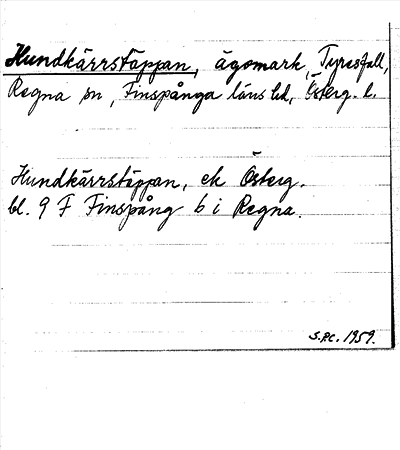 Hundkärrstäppan, ägomark, Tyresfall,
Regna sn, Finspånga läns hd, Österg. l.
Hundkärrstäppan, ek Österg.
bl. 9 F Finspång b i Regna.
S.P.C. 1959.